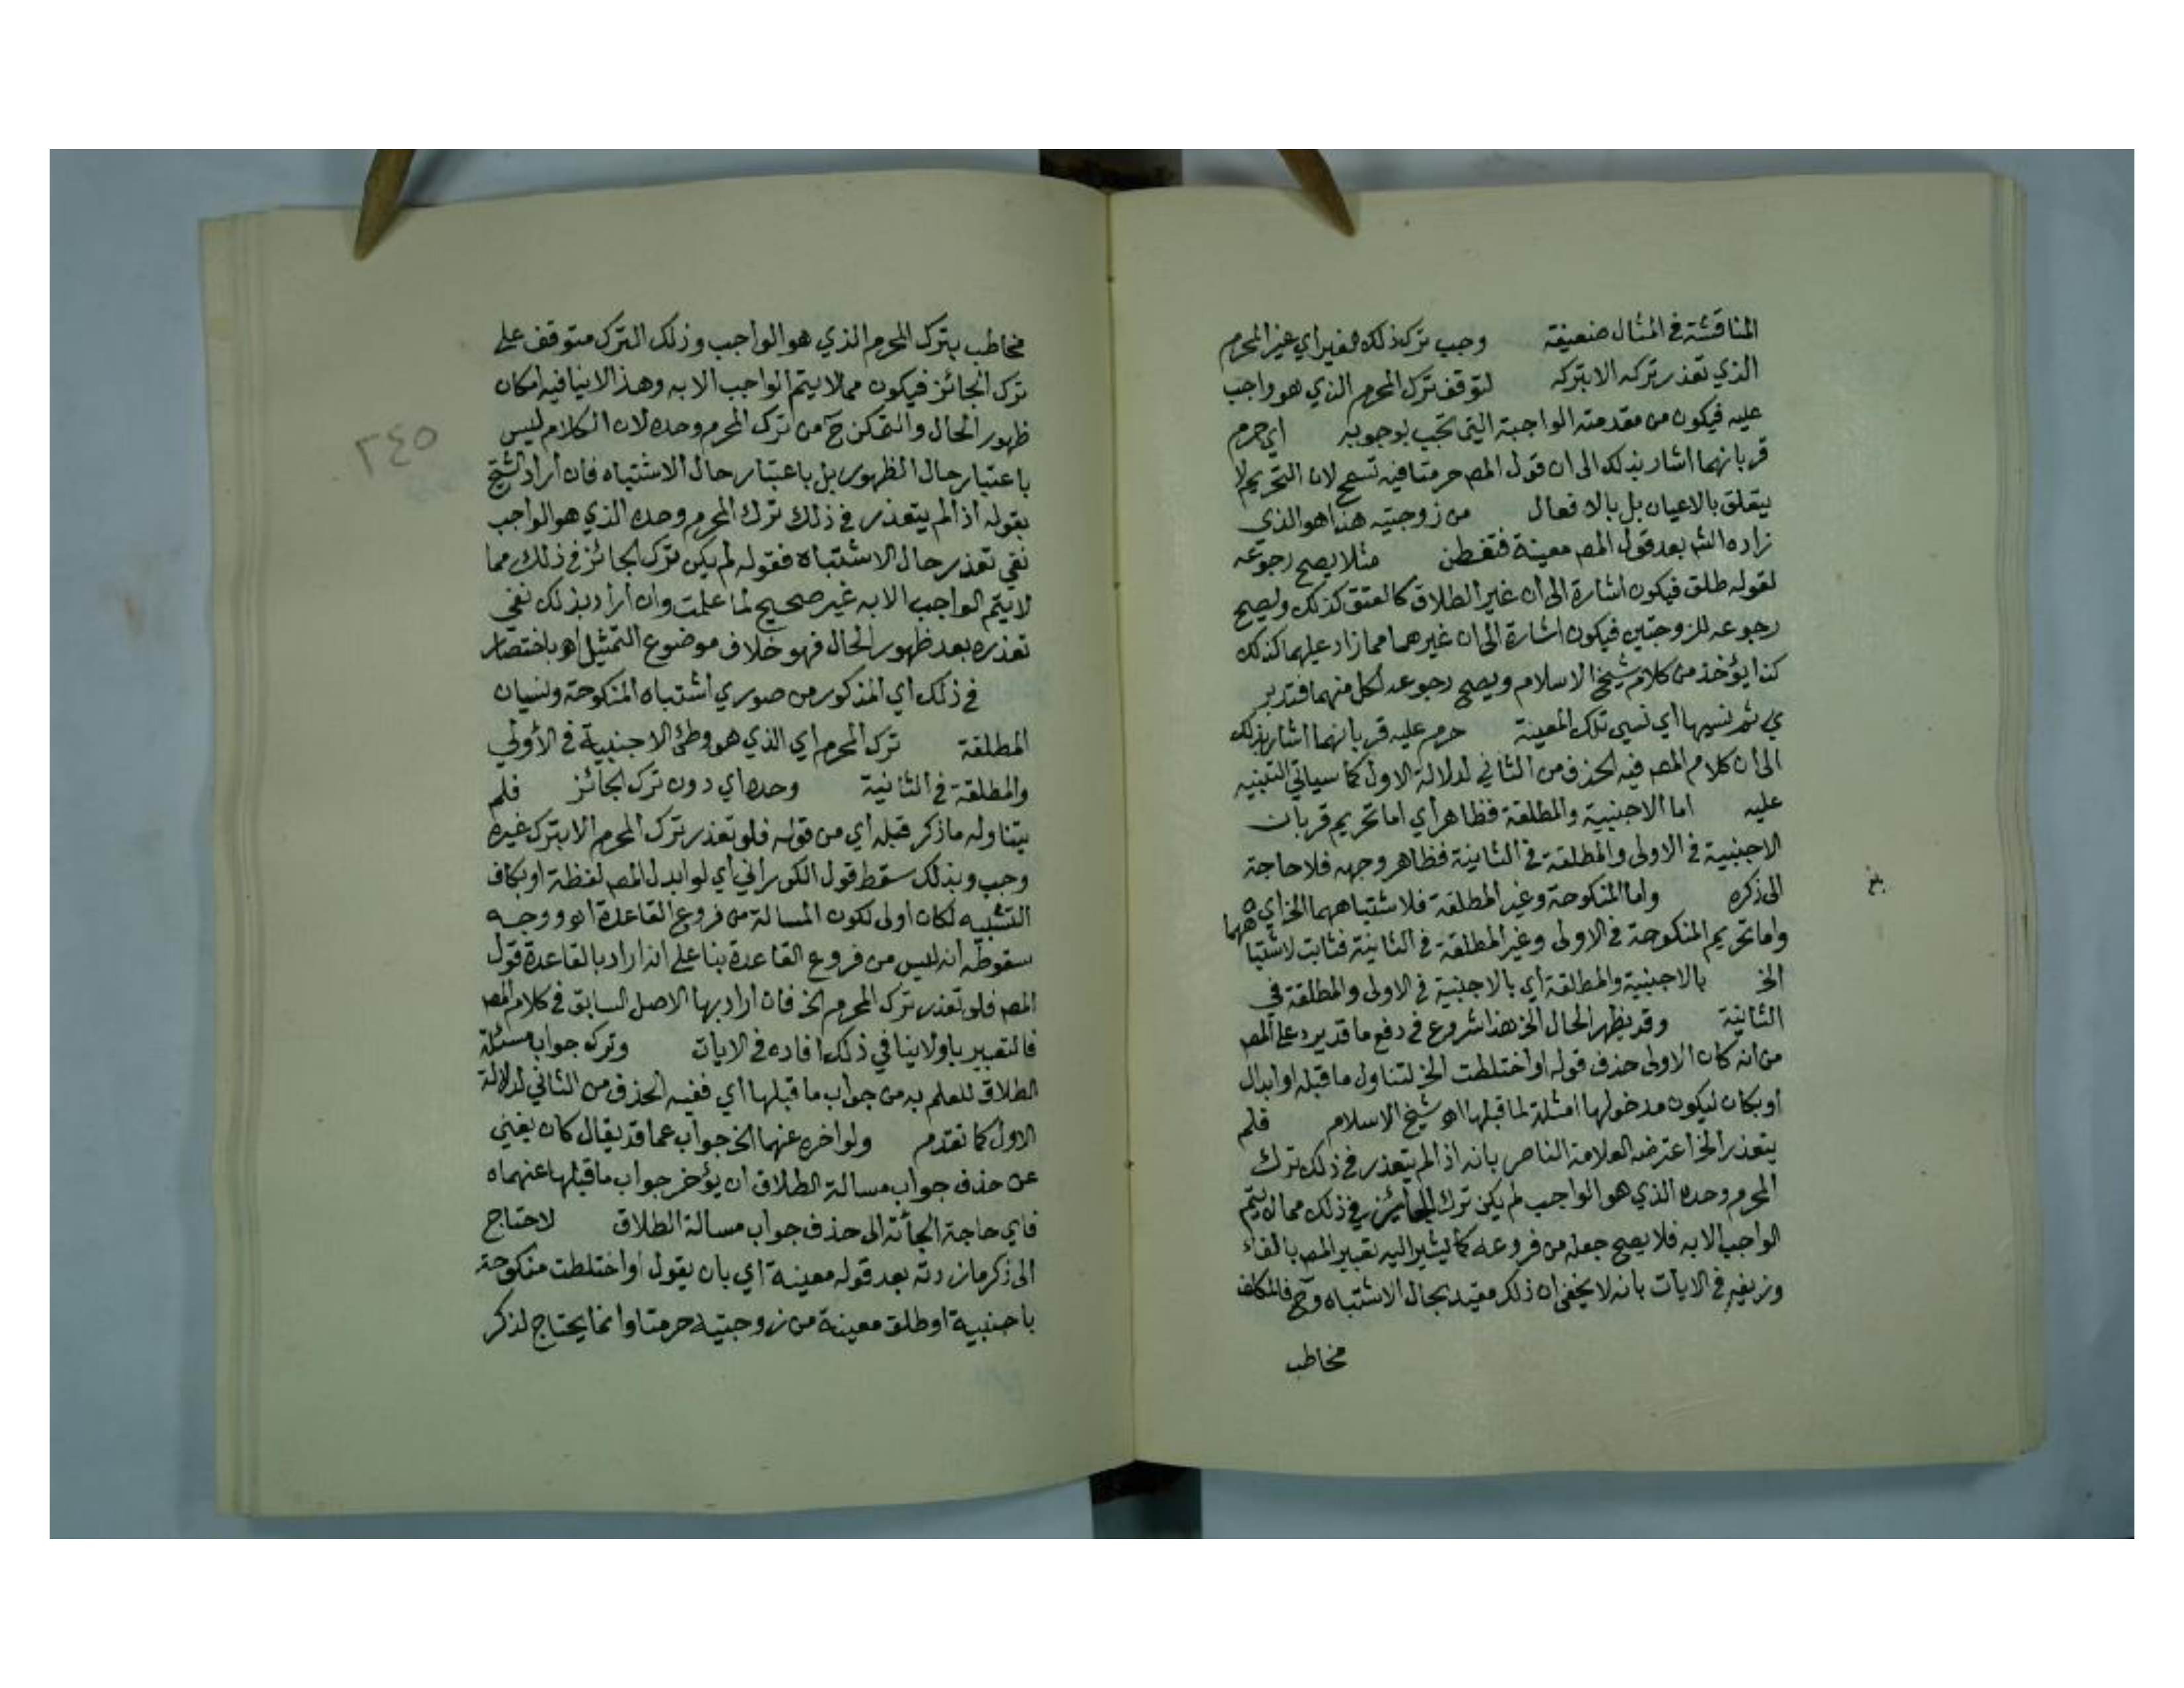 المناقشة في المثال ضعيفة وجب ترك ذلك الغير اي غير المحرم
الذي تعذر تركه الا بتركه لتوقف ترك المحرم الذي هو واجب
عليه فيكون من مقدمته الواجبة التي تجب بوجوبه اي حرم
قربانهما اشار بذلك الى ان قول المص حرمتا فيه تسمح لان التحريم لا
يتعلق بالاعيان بل بالافعال من زوجتيه هذا هو الذي
زاده الش بعد قول المص معينة فتفطن مثلا يصح رجوعه
لقوله طلق فيكون اشارة الى ان غير الطلاق كالعتق كذلك ويصح
رجوعه للزوجتين فيكون اشارة الى ان غيرهما مما زاد عليهما كذلك
كذا يؤخذ من كلام شيخ الاسلام ويصح رجوعه لكل منهما فتدبر
ثم نسيها اي نسي تلك المعينة حرم عليه قربانهما اشار بذلك
الى ان كلام المص فيه الحذف من الثاني لدلالة الاول كما سياتي التنبيه
عليه اما الاجنبية والمطلقة فظاهر اي اما تحريم قربان
الاجنبية في الاولى والمطلقة في الثانية فظاهر وجهه فلا حاجة
الى ذكره واما المنكوحة وغير المطلقة فلاشتباههما الخ اي
واما تحريم المنكوحة في الاولى وغير المطلقة في الثانية فثابت لاشتباههما
الخ بالاجنبية والمطلقة اي بالاجنبية في الاولى والمطلقة في
الثانية وقد يظهر الحال الخ هذا شروع في دفع ما قد يرد على المص
من انه كان الاولى حذف قوله او اختلطت الخ لتناول ما قبله او ابدال
او بكان ليكون مدخولها امثلة لما قبلها اه شيخ الاسلام فلم
يتعذر الخ اعترضه العلامة الناصر بانه اذا لم يتعذر في ذلك ترك
المحرم وحده الذي هو الواجب لم يكن ترك الجائز في ذلك مما لا يتم
الواجب الا به فلا يصح جعله من فروعه كما يشير اليه تعبير المص بالفاء
وزيفه في الايات بانه لا يخفى ان ذلك مقيد بحال الاشتباه وح فالمكلف
مخاطب
بلغ
٢٤٥
مخاطب بترك المحرم الذي هو الواجب وذلك الترك متوقف على
ترك الجائز فيكون مما لا يتم الواجب الا به وهذا لا ينافيه امكان
ظهور الحال والتمكن ح من ترك المحرم وحده لان الكلام ليس
باعتبار حال الظهور بل باعتبار حال الاشتباه فان أراد الشيخ
بقوله اذا لم يتعذر في ذلك ترك المحرم وحده الذي هو الواجب
نفي تعذر حال الاشتباه فقوله لم يكن ترك الجائز في ذلك مما
لا يتم الواجب الا به غير صحيح لما علمت وان أراد بذلك نفي
تعذره بعد ظهور الحال فهو خلاف موضوع التمثيل اه باختصار
في ذلك اي المذكور من صورتي اشتباه المنكوحة ونسيان
المطلقة ترك المحرم اي الذي هو وطئ الاجنبية في الأولى
والمطلقة في الثانية وحده اي دون ترك الجائز فلم
يتناوله ما ذكر قبله أي من قوله فلو تعذر ترك المحرم الا بترك غيره
وجب وبذلك سقط قول الكوراني أي لو ابدل المص لفظة او بكاف
التشبيه لكان اولى لكون المسالة من فروع القاعدة اه ووجه
سقوطه انه ليس من فروع القاعدة بنا على انه اراد بالقاعدة قول
المص فلو تعذر ترك المحرم الخ فان اراد بها الاصل السابق في كلام المص
فالتعبير باو لا ينافي ذلك افاده في الايات وترك جواب مسئلة
الطلاق للعلم به من جواب ما قبلها أي ففيه الحذف من الثاني لدلالة
الاول كما تقدم ولو اخره عنهما الخ جواب عما قد يقال كان يغني
عن حذف جواب مسالة الطلاق ان يؤخر جواب ما قبلها عنهما
فاي حاجة الجأته الى حذف جواب مسالة الطلاق لاحتاج
الى ذكر ما زدته بعد قوله معينة اي بان يقول او اختلطت منكوحة
باجنبية او طلق معينة من زوجتيه حرمتا وانما يحتاج لذكر